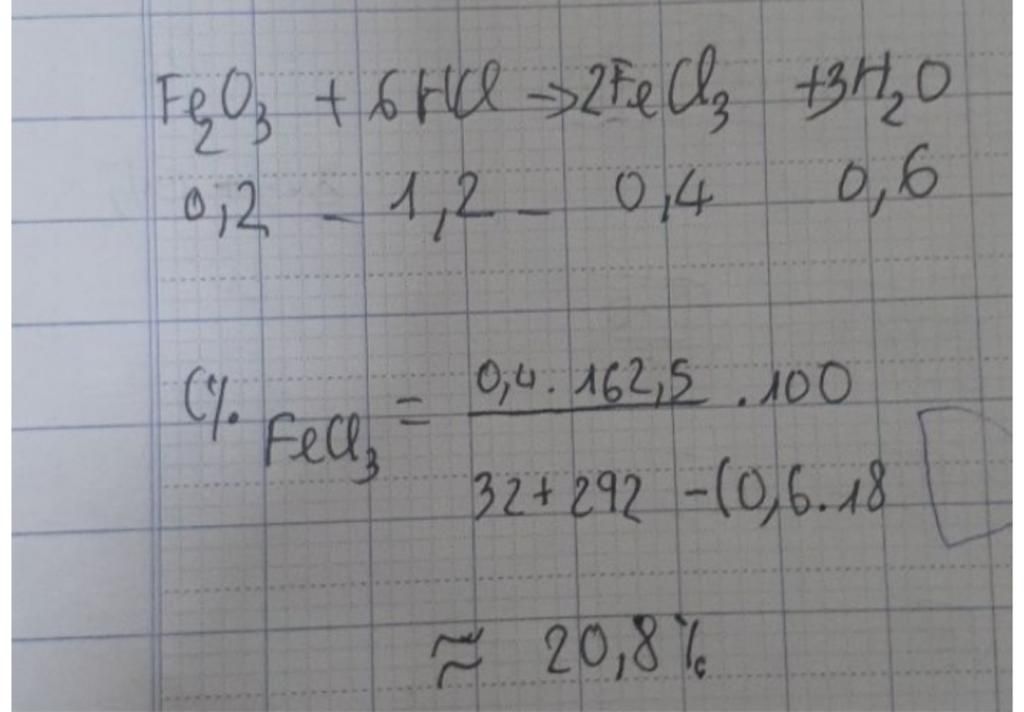 Fe₂O₃ + 6HCl → 2FeCl₃ + 3H₂O
0,2 - 1,2 - 0,4 0,6
C% FeCl₃ = 0,4 . 162,5 . 100
32 + 292 - (0,6 . 18
≈ 20,8%